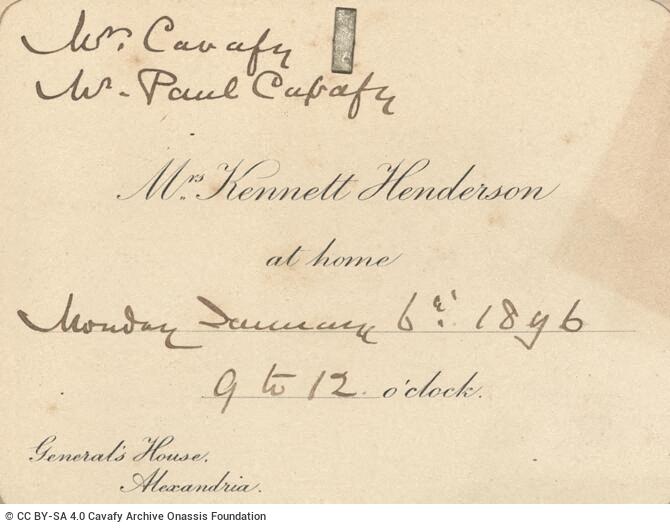 Mr. Cavafy
Mr. Paul Cavafy
Mrs. Kennett Henderson
at home
Monday January 6th. 1896
9 to 12 o'clock.
General's House.
Alexandria.
© CC BY-SA 4.0 Cavafy Archive Onassis Foundation